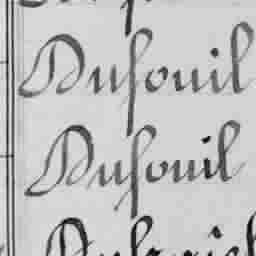 Dufouil
Dufouil